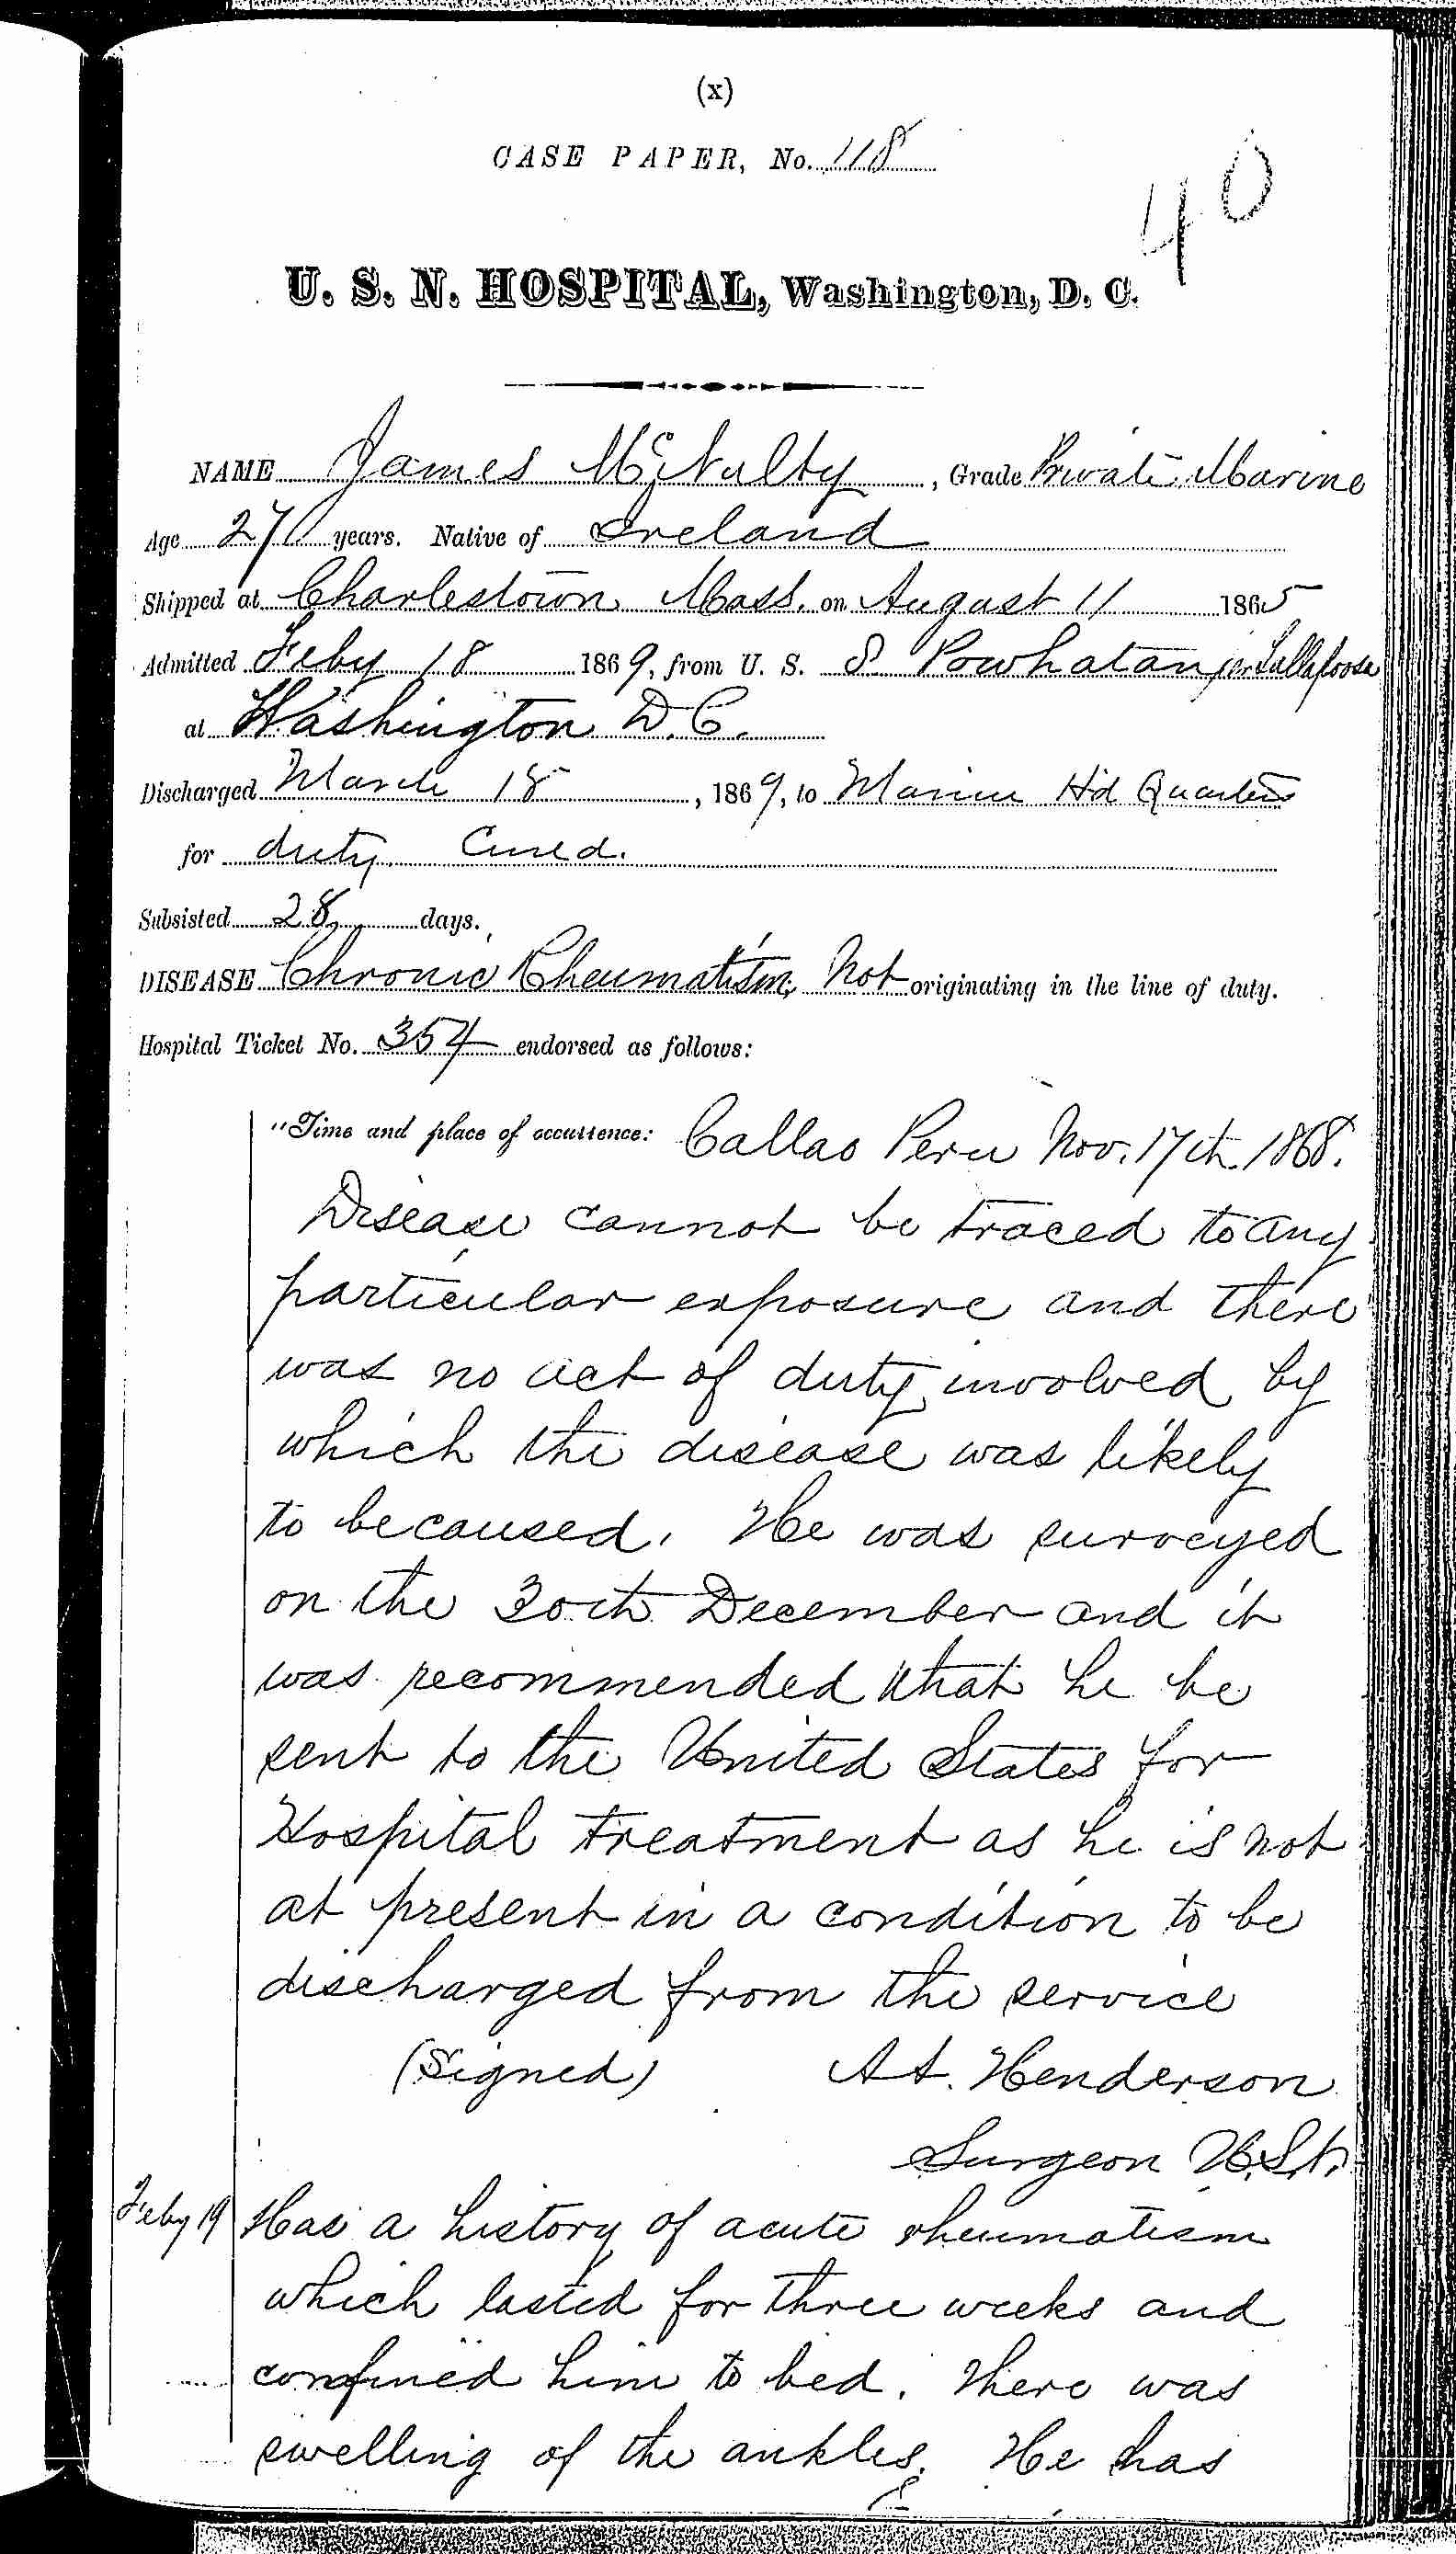 (x)
CASE PAPER, No. 118
40
U. S. N. HOSPITAL, Washington, D. C.
NAME James McNulty, Grade Private Marine
Age 27 years. Native of Ireland
Shipped at Charlestown Mass. on August 11 1865
Admitted Feby 18 1869, from U. S. S. Powhatan per Tallapoosa
at Washington D.C.
Discharged March 18, 1869, to Marine Hd Quarters
for duty. Cured.
Subsisted 28 days.
DISEASE Chronic Rheumatism, Not originating in the line of duty.
Hospital Ticket No. 354 endorsed as follows:
"Time and place of occurrence: Callao Peru Nov. 17th. 1868.
Disease cannot be traced to any
particular exposure and there
was no act of duty involved by
which the disease was likely
to be caused. He was surveyed
on the 30th December and it
was recommended that he be
sent to the United States for
Hospital treatment as he is not
at present in a condition to be
discharged from the service
(Signed) At. Henderson
Surgeon U.S.N.
Feby 19 Has a history of acute rheumatism
which lasted for three weeks and
confined him to bed. There was
swelling of the ankles. He has